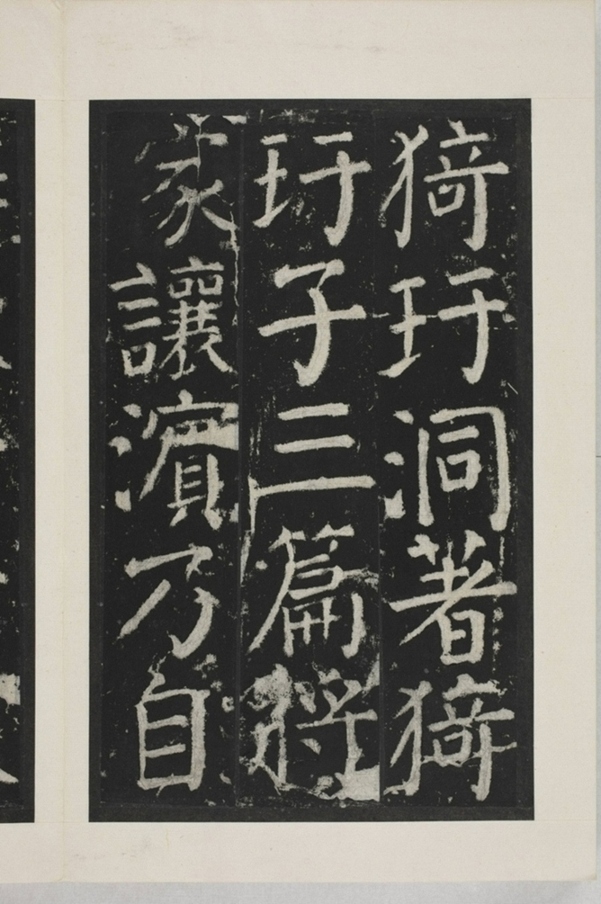 猗玗洞著猗
玗子三篇將
家讓濱乃自